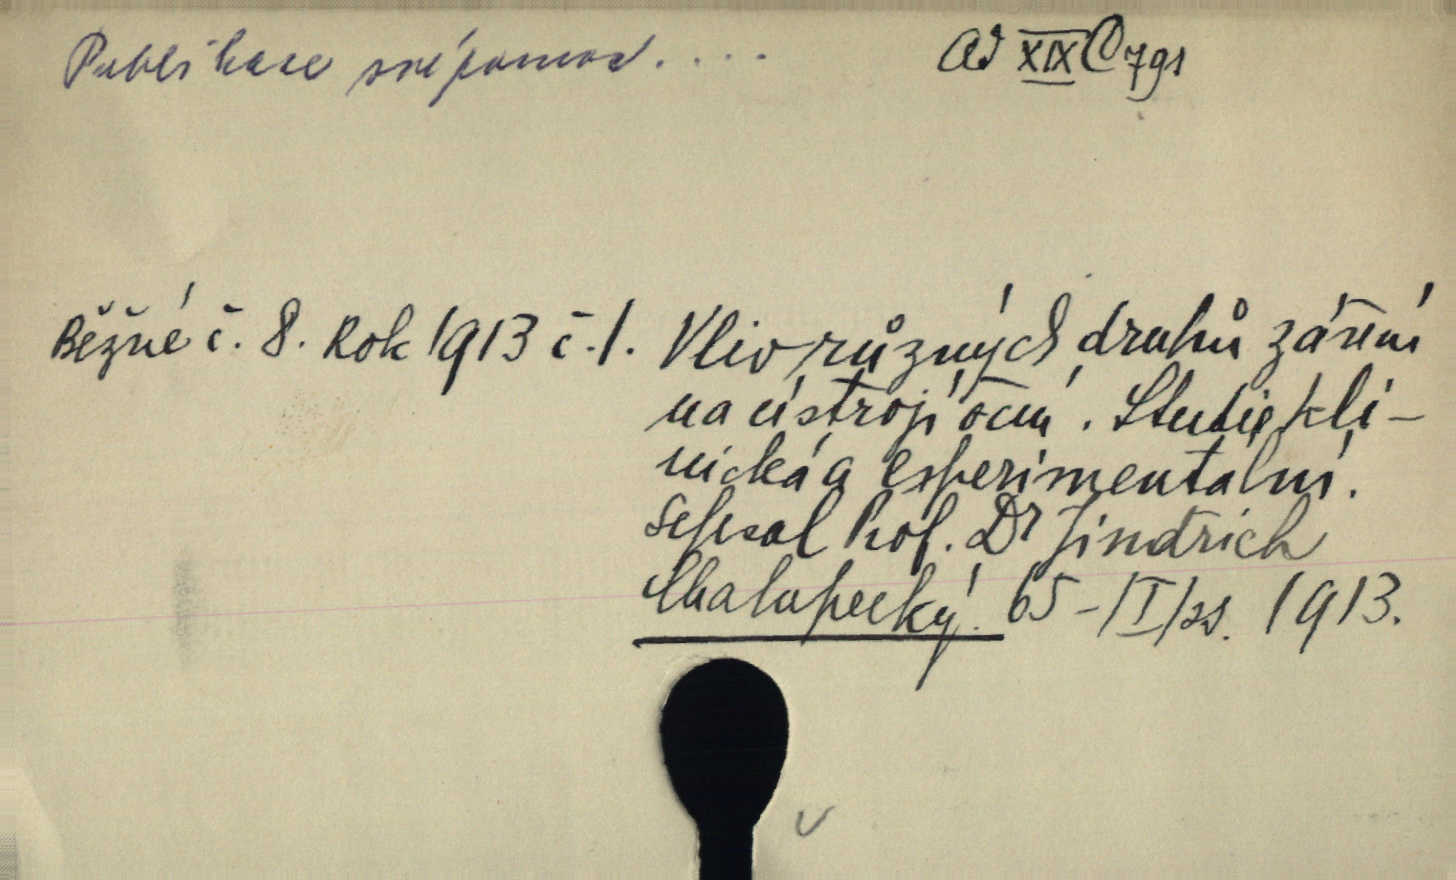 Publikace svépomoci....
Ad XIX C 791
Běžné č. 8. Rok 1913 č. 1. Vliv různých druhů záření
na ústrojí oční. Studie kli-
nická a experimentalní.
Sepsal Prof. Dr Jindřich
Chalupecký. 65-/I/ss. 1913.